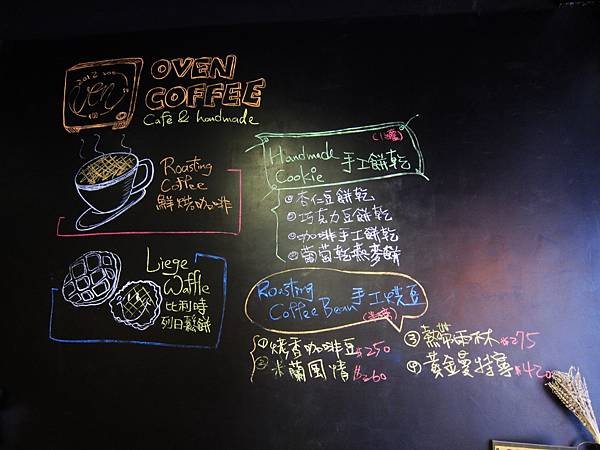 OVEN
COFFEE
Café & handmade
Roasting
Coffee
鮮烘咖啡
Liege
Waffle
比利時
列日鬆餅
Handmade
Cookie
手工餅乾
①杏仁豆餅乾
②巧克力豆餅乾
③咖啡手工餅乾
④葡萄乾燕麥餅
Roasting
Coffee Bean
手工烘豆
(半磅)
①烤香咖啡豆$250
②米蘭風情$260
③熱帶雨林$275
④黃金曼特寧$420